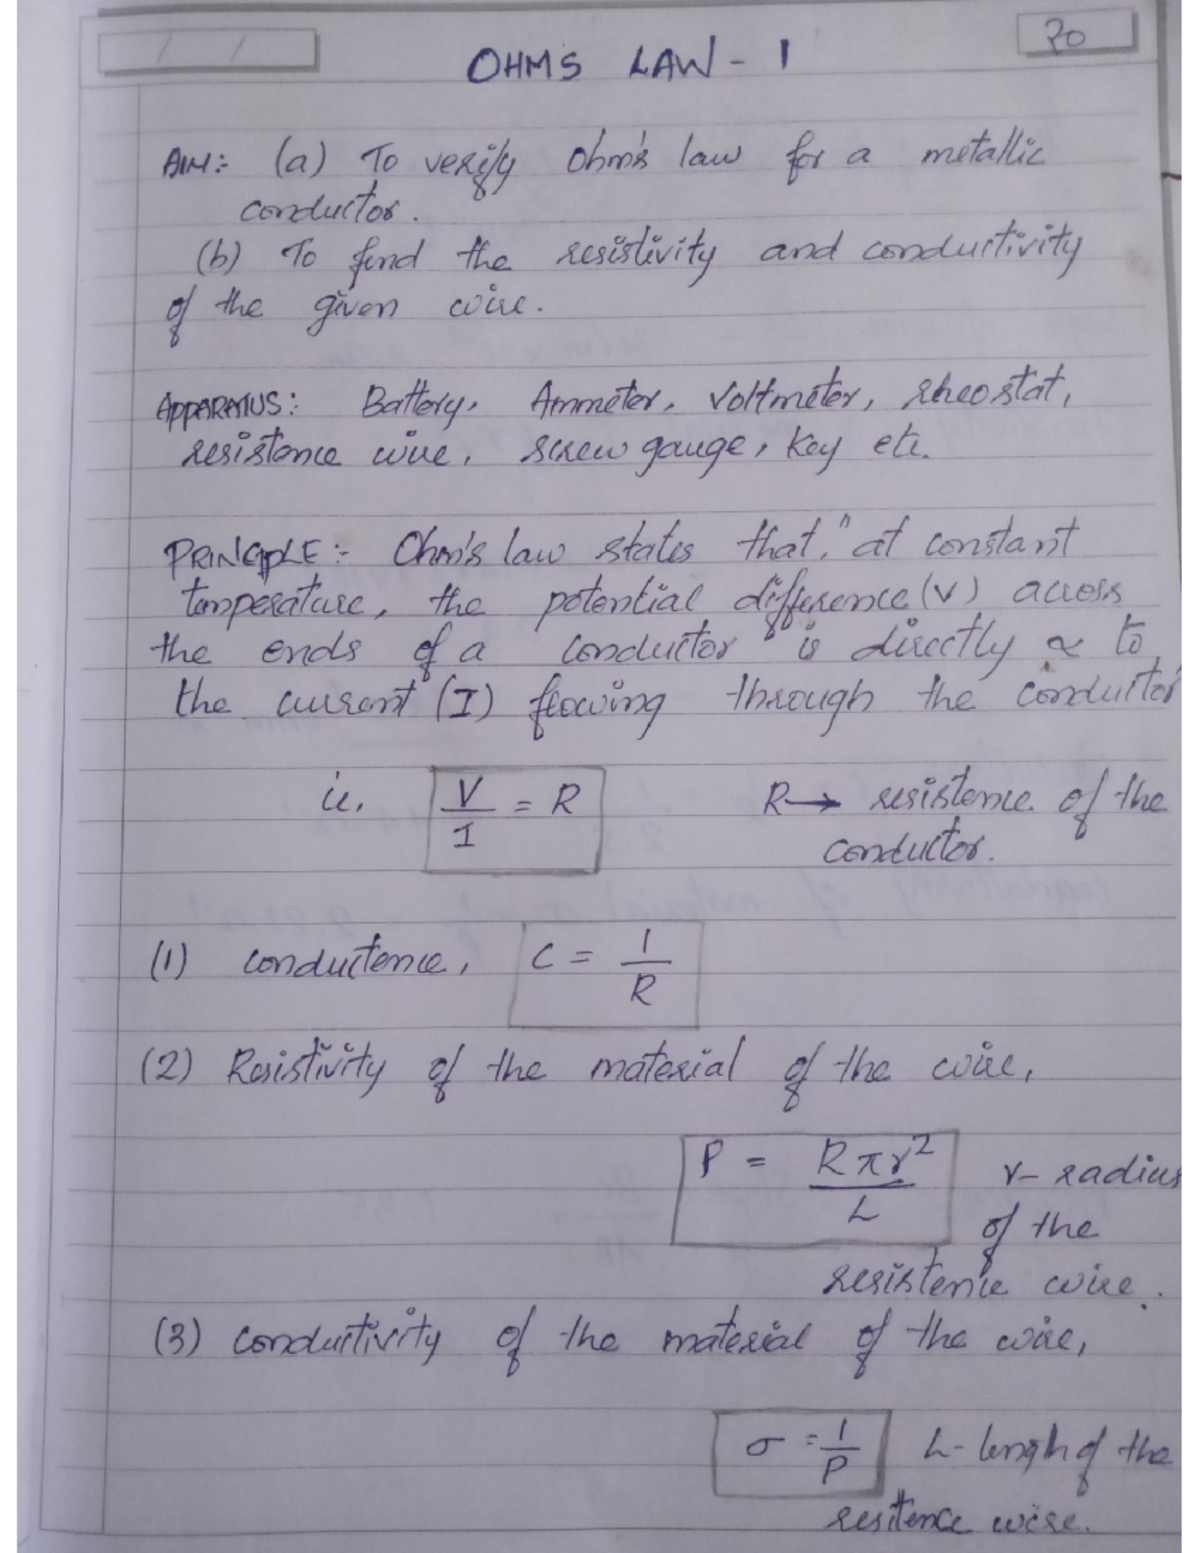 / /
20
OHMS LAW - 1
AIM:- (a) To verify Ohm's law for a metallic
conductor.
(b) To find the resistivity and conductivity
of the given wire.
APPARATUS: Battery, Ammeter, Voltmeter, rheostat,
resistence wire, screw gauge, Key etc.
PRINCIPLE:- Ohm's law states that, "at constant
temperature, the potential difference (V) across
the ends of a conductor is directly ∝ to
the current (I) flowing through the conductor
ie, V/I = R R → resistence of the
conductor.
(1) conductence, C = 1/R
(2) Resistivity of the material of the wire,
ρ = Rπr²/L r - radius
of the
resistence wire.
(3) conductivity of the material of the wire,
σ = 1/ρ L - length of the
resitence wire.